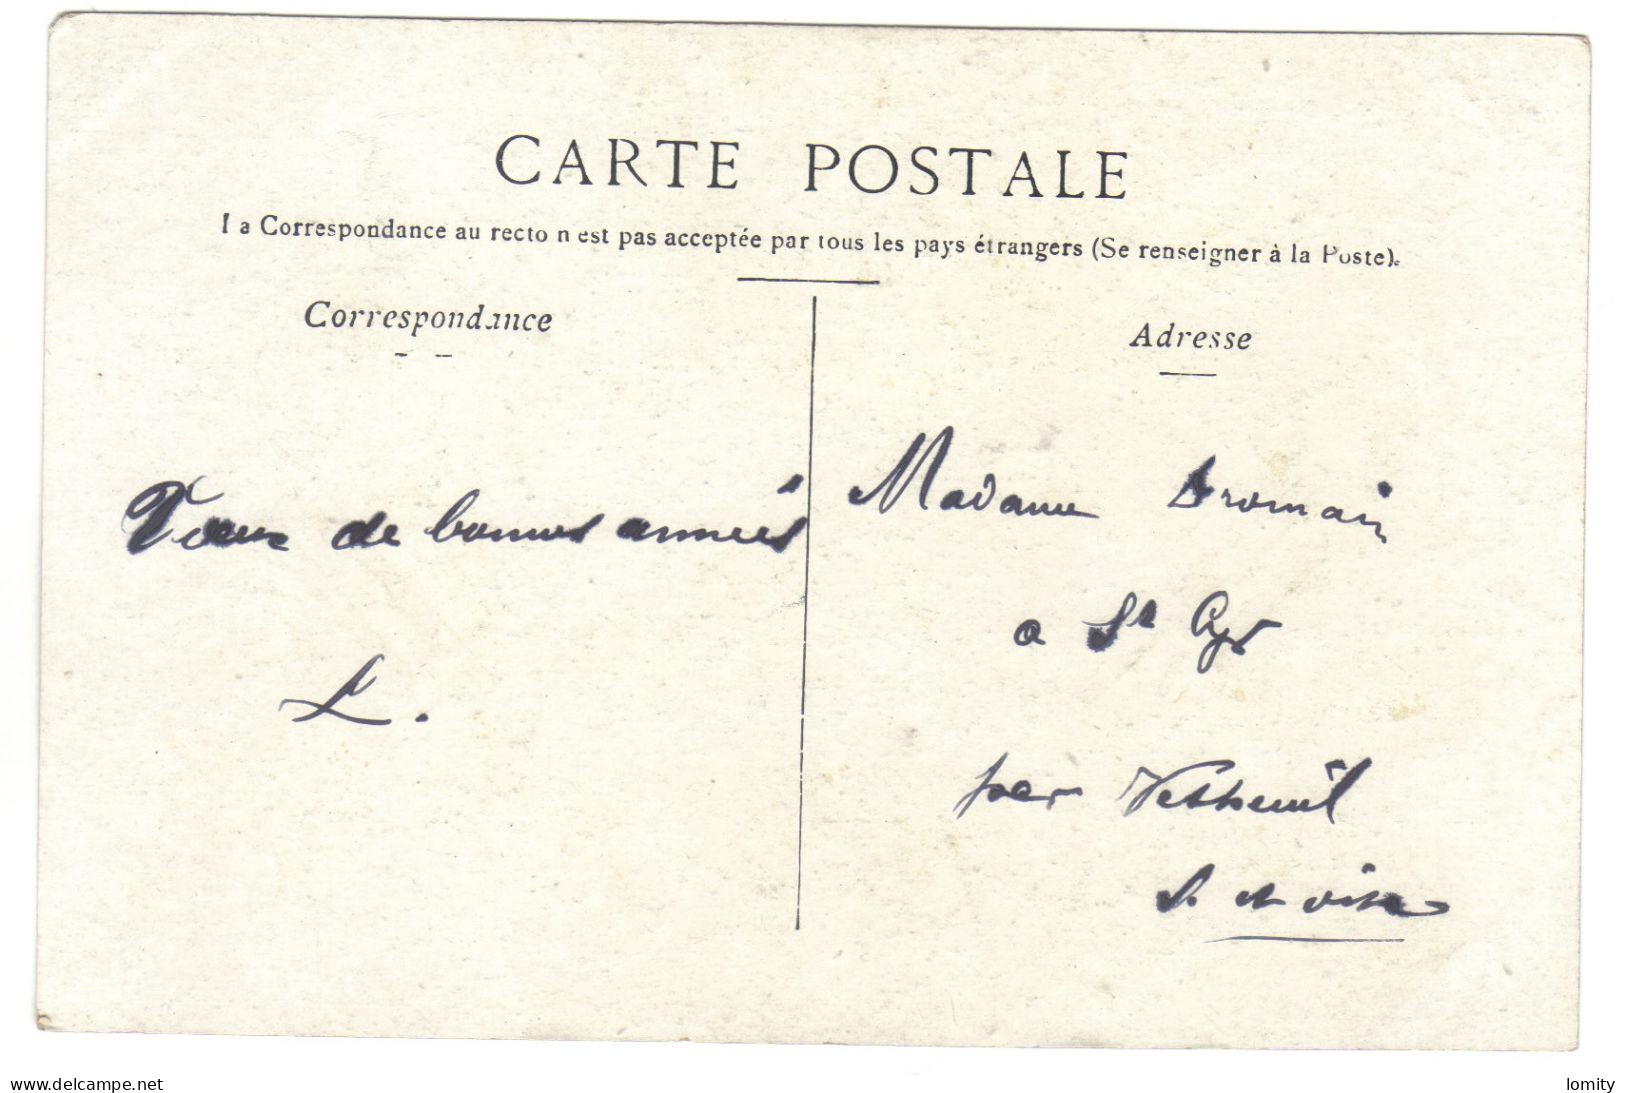 CARTE POSTALE
La Correspondance au recto n'est pas acceptée par tous les pays étrangers (Se renseigner à la Poste).
Correspondance
Adresse
Vœux de bonnes années
L.
Madame Dromain
a St Cyr
par Vetheuil
S. et oise
www.delcampe.net
lomity